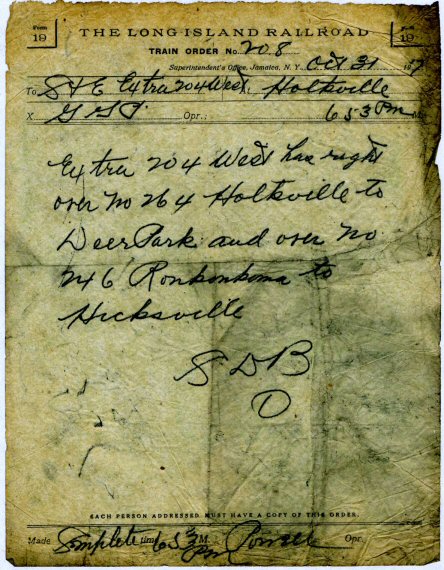 Form 19 THE LONG ISLAND RAILROAD Form 19
TRAIN ORDER No. 208
Superintendent's Office, Jamaica, N. Y. Oct 31 19
To C&E Extra 204 West: Holtsville
X Opr.: 6 53 PM M.
Extra 204 West has right
over No 264 Holtsville to
Deer Park and over No
246 Ronkonkoma to
Hicksville
D B
EACH PERSON ADDRESSED MUST HAVE A COPY OF THIS ORDER.
Made Complete time 6 53 M. PM Opr.